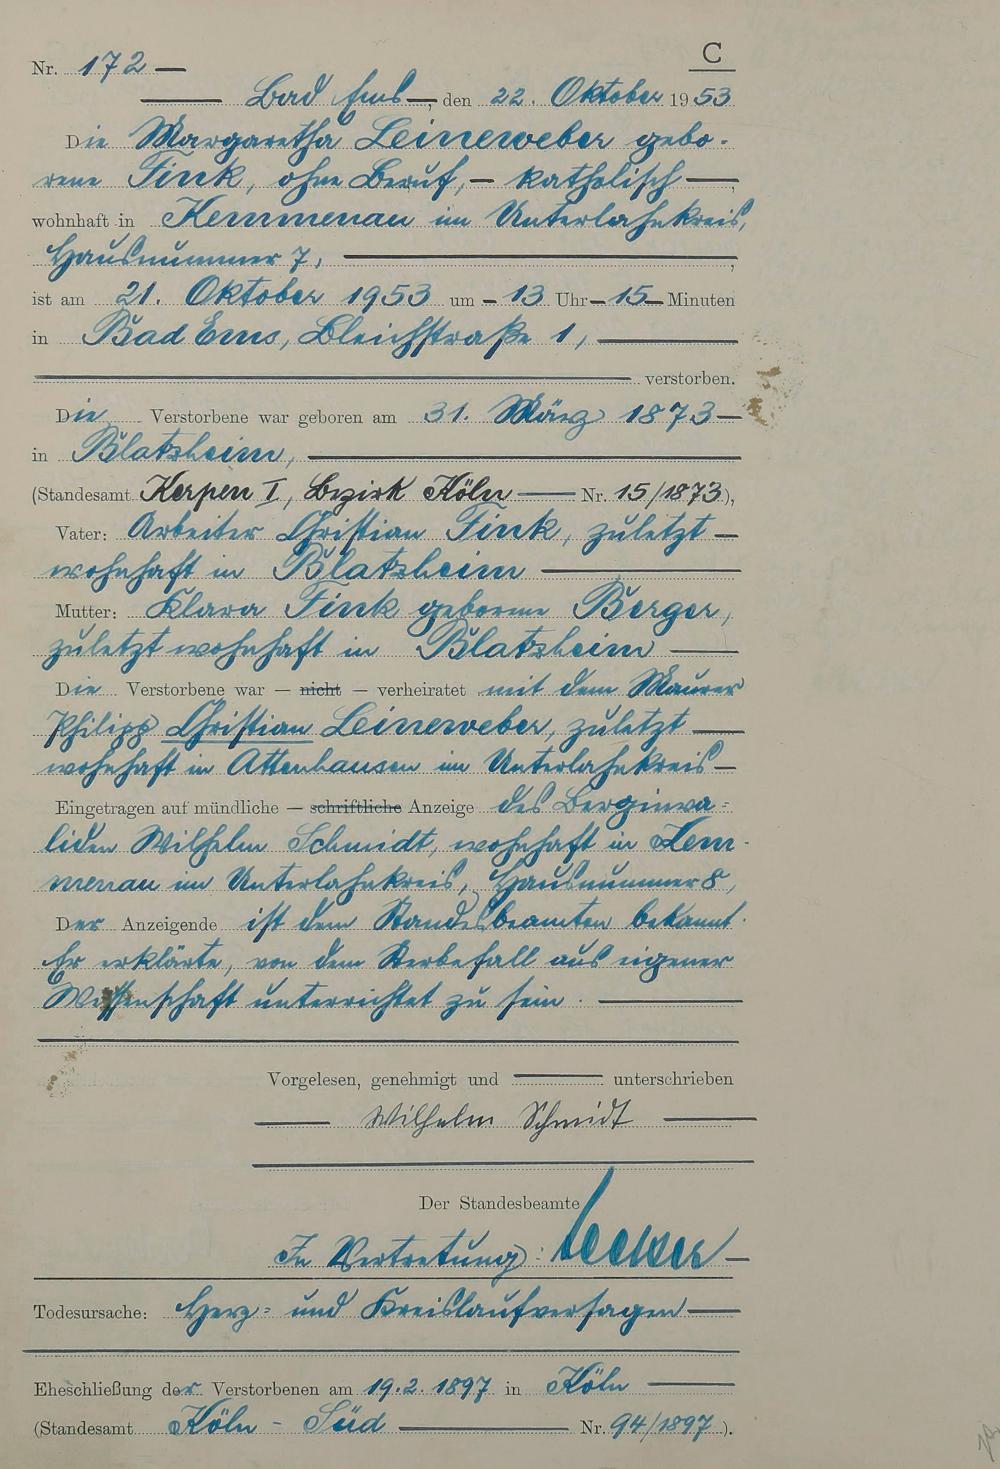 C
Nr. 172 —
— Bad Ems —, den 22. Oktober 1953
Die Margaretha Leineweber gebo-
rene Fink, ohne Beruf, — katholisch —,
wohnhaft in Kemmenau im Unterlahnkreis,
Hausnummer 7, —,
ist am 21. Oktober 1953 um — 13 Uhr — 15 — Minuten
in Bad Ems, Bleichstraße 1, —
— verstorben.
Die Verstorbene war geboren am 31. März 1873 —
in Blatzheim, —
(Standesamt Kerpen I, Bezirk Köln — Nr. 15/1873),
Vater: Arbeiter Christian Fink, zuletzt —
wohnhaft in Blatzheim —
Mutter: Klara Fink geborene Berger,
zuletzt wohnhaft in Blatzheim —
Die Verstorbene war — nicht — verheiratet mit dem Maurer
Philipp Christian Leineweber, zuletzt —
wohnhaft in Attenhausen im Unterlahnkreis —
Eingetragen auf mündliche — schriftliche Anzeige des Berginva=
liden Wilhelm Schmidt, wohnhaft in Kem-
menau im Unterlahnkreis, Hausnummer 8,
Der Anzeigende ist dem Standesbeamten bekannt.
Er erklärte, von dem Sterbefall aus eigener
Wissenschaft unterrichtet zu sein. —
Vorgelesen, genehmigt und — unterschrieben
— Wilhelm Schmidt —
Der Standesbeamte
In Vertretung:
Todesursache: Herz= und Kreislaufversagen —
Eheschließung der Verstorbenen am 19.2.1897 in Köln —
(Standesamt Köln - Süd — Nr. 94/1897).